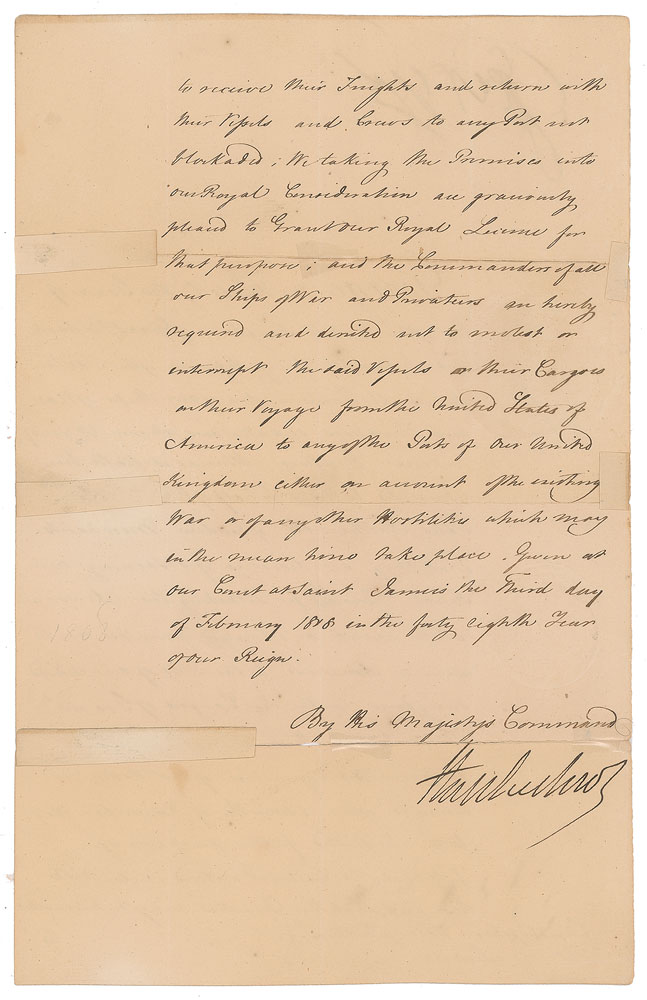 to receive their Frights and return with
their Vessels and Crews to any Port not
blockaded; We taking the Premises into
our Royal Consideration are graciously
pleased to Grant our Royal License for
that purpose; and the Commanders of all
our Ships of War and Privateers are hereby
required and desired not to molest or
interrupt the said Vessels or their Cargoes
on their Voyage from the United States of
America to any of the Ports of Our United
Kingdom either on account of the existing
War or of any other Hostilities which may
in the mean time take place. Given at
our Court at Saint James's the Third day
of February 1808 in the forty eighth Year
of our Reign.
By His Majesty's Command
Hawkesbury